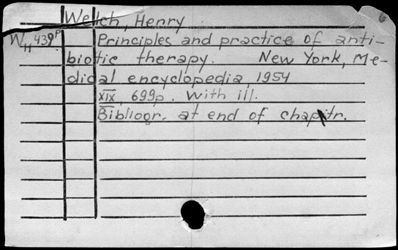 Welch, Henry
W11439P Principles and practice of anti-
biotic therapy. New York, Me-
dical encyclopedia, 1954
XIX, 699p. With ill.
Bibliogr. at end of chaptr.